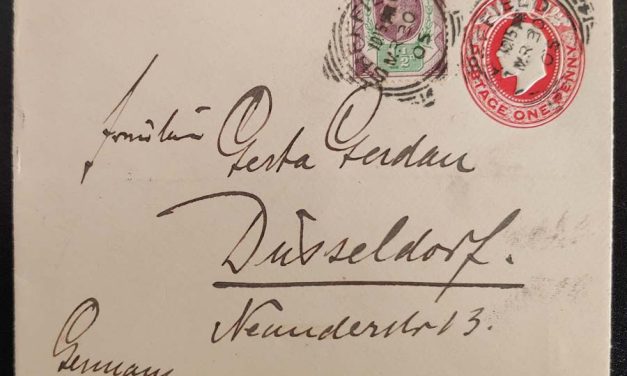 MR 30
05
MR 30
05
POSTAGE ONE PENNY
Fräulein Gerta Gerdau
Düsseldorf.
Neanderstr 13.
Germany